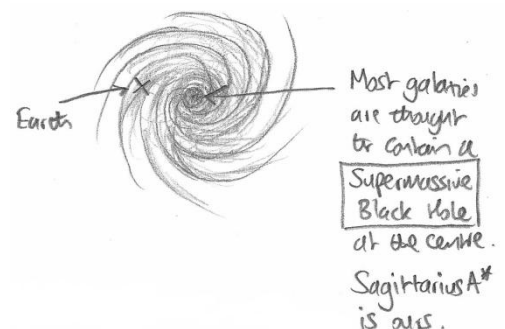 Earth
Most galaxies
are thought
to contain a
Supermassive
Black Hole
at the centre.
Sagittarius A*
is ours.